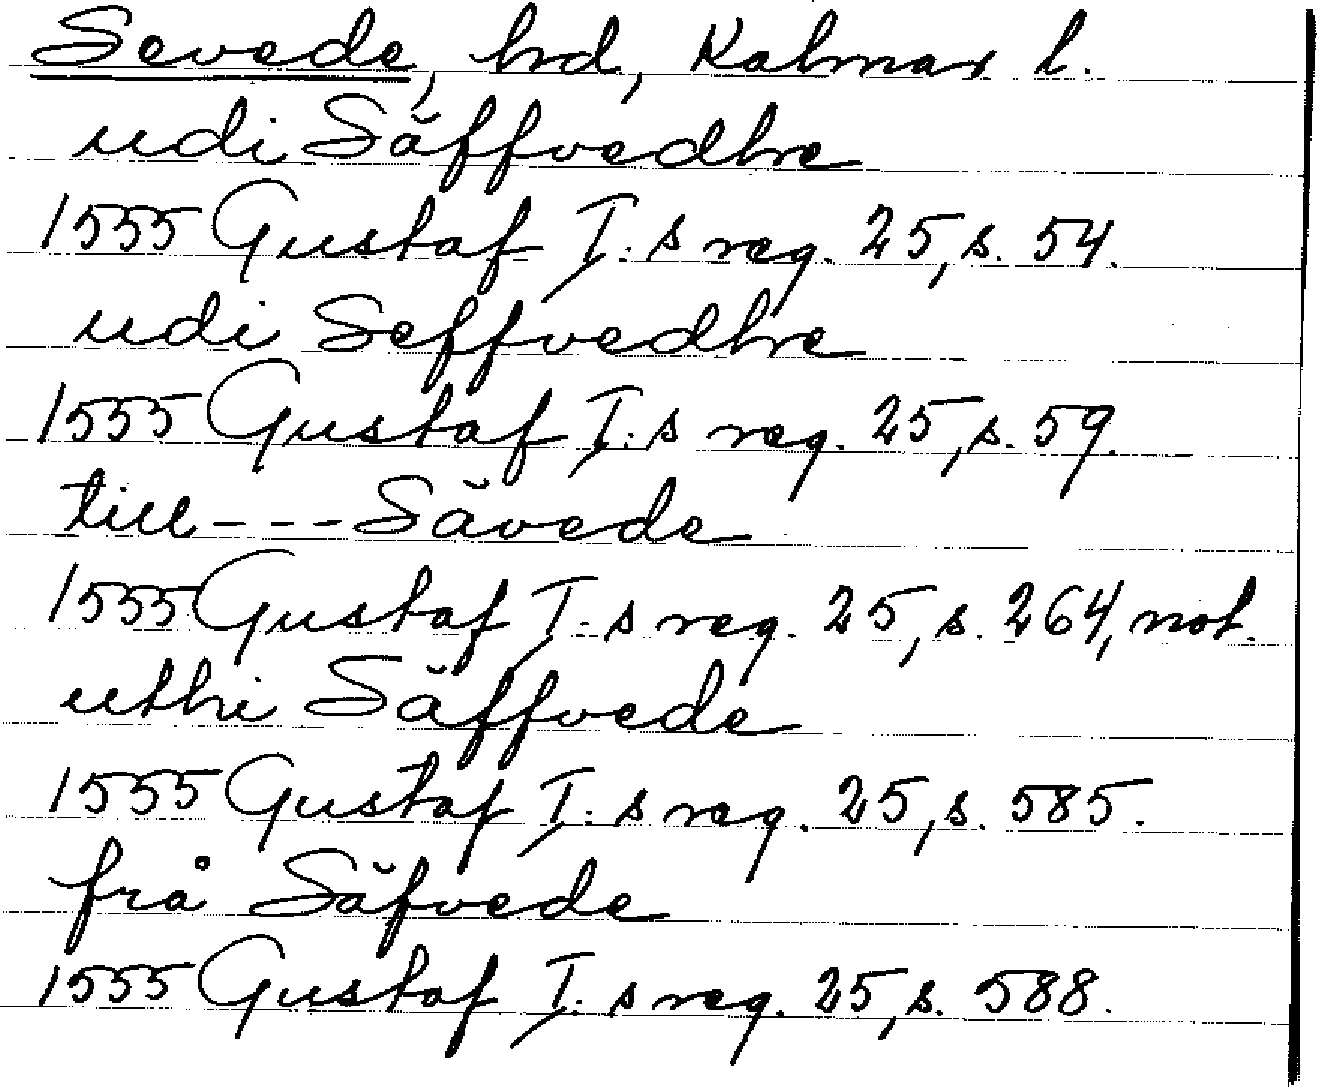 Sevede, hrd, Kalmar l.
udi Säffvedhe
1555 Gustaf I:s reg. 25, s. 54.
udi Seffvedhe
1555 Gustaf I:s reg. 25, s. 59.
till --- Sävede
1555 Gustaf I:s reg. 25, s. 264, not.
uthi Säffvede
1555 Gustaf I:s reg. 25, s. 585.
frå Säfvede
1555 Gustaf I:s reg. 25, s. 588.